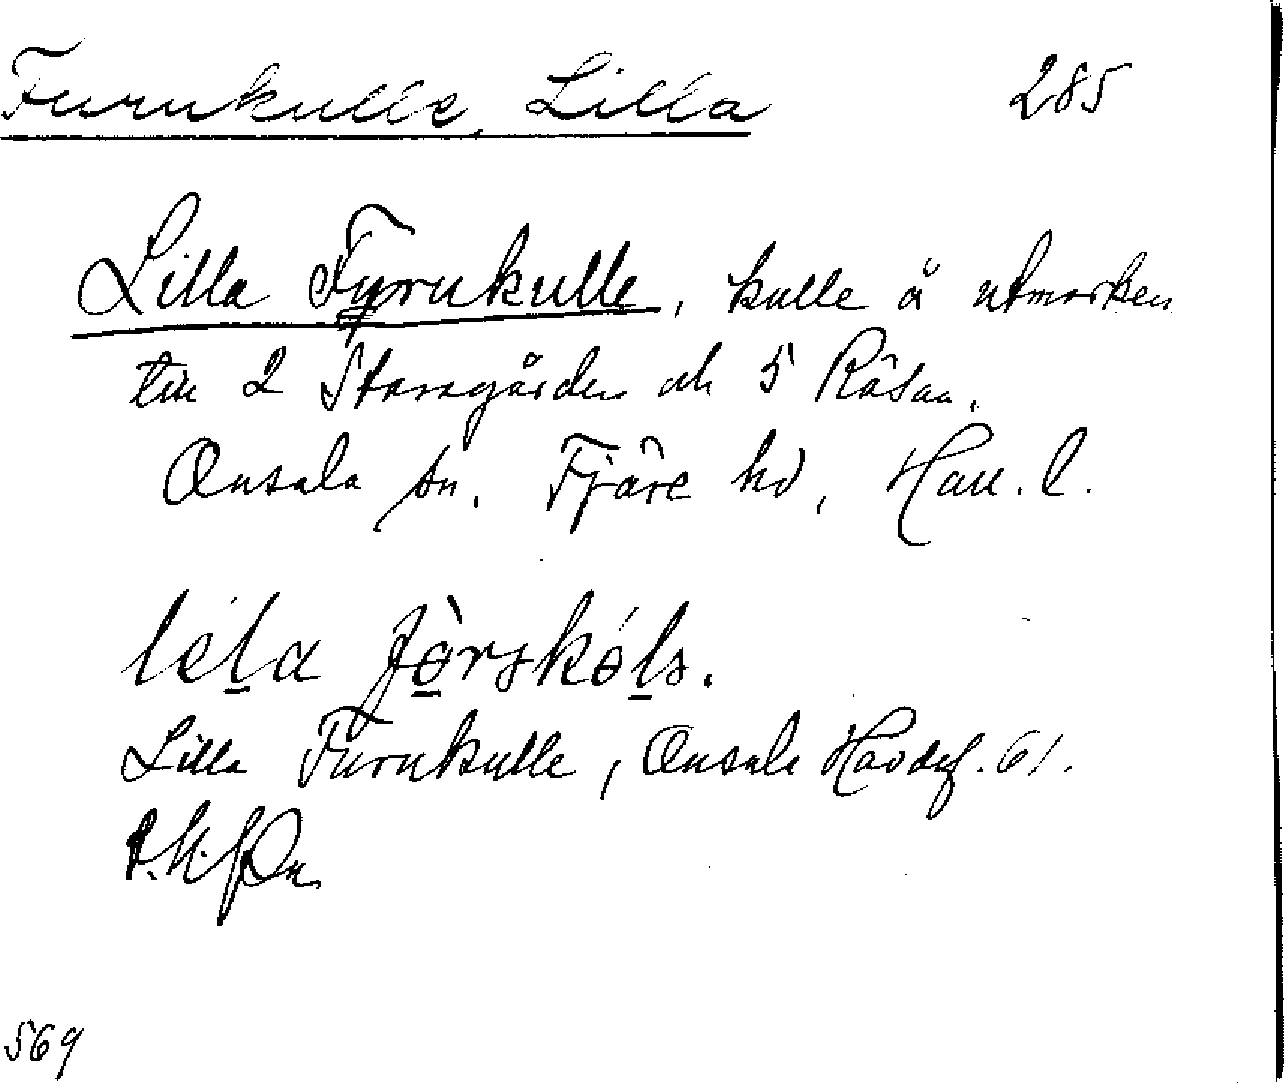 Furukulle, Lilla 285
Lilla Fyrukulle, kulle å utmarken
till 2 Storegården och 5 Råsan.
Onsala sn. Fjäre hd, Hall. l.
Lilla Furukulle, Onsala Havdef. 61.
569